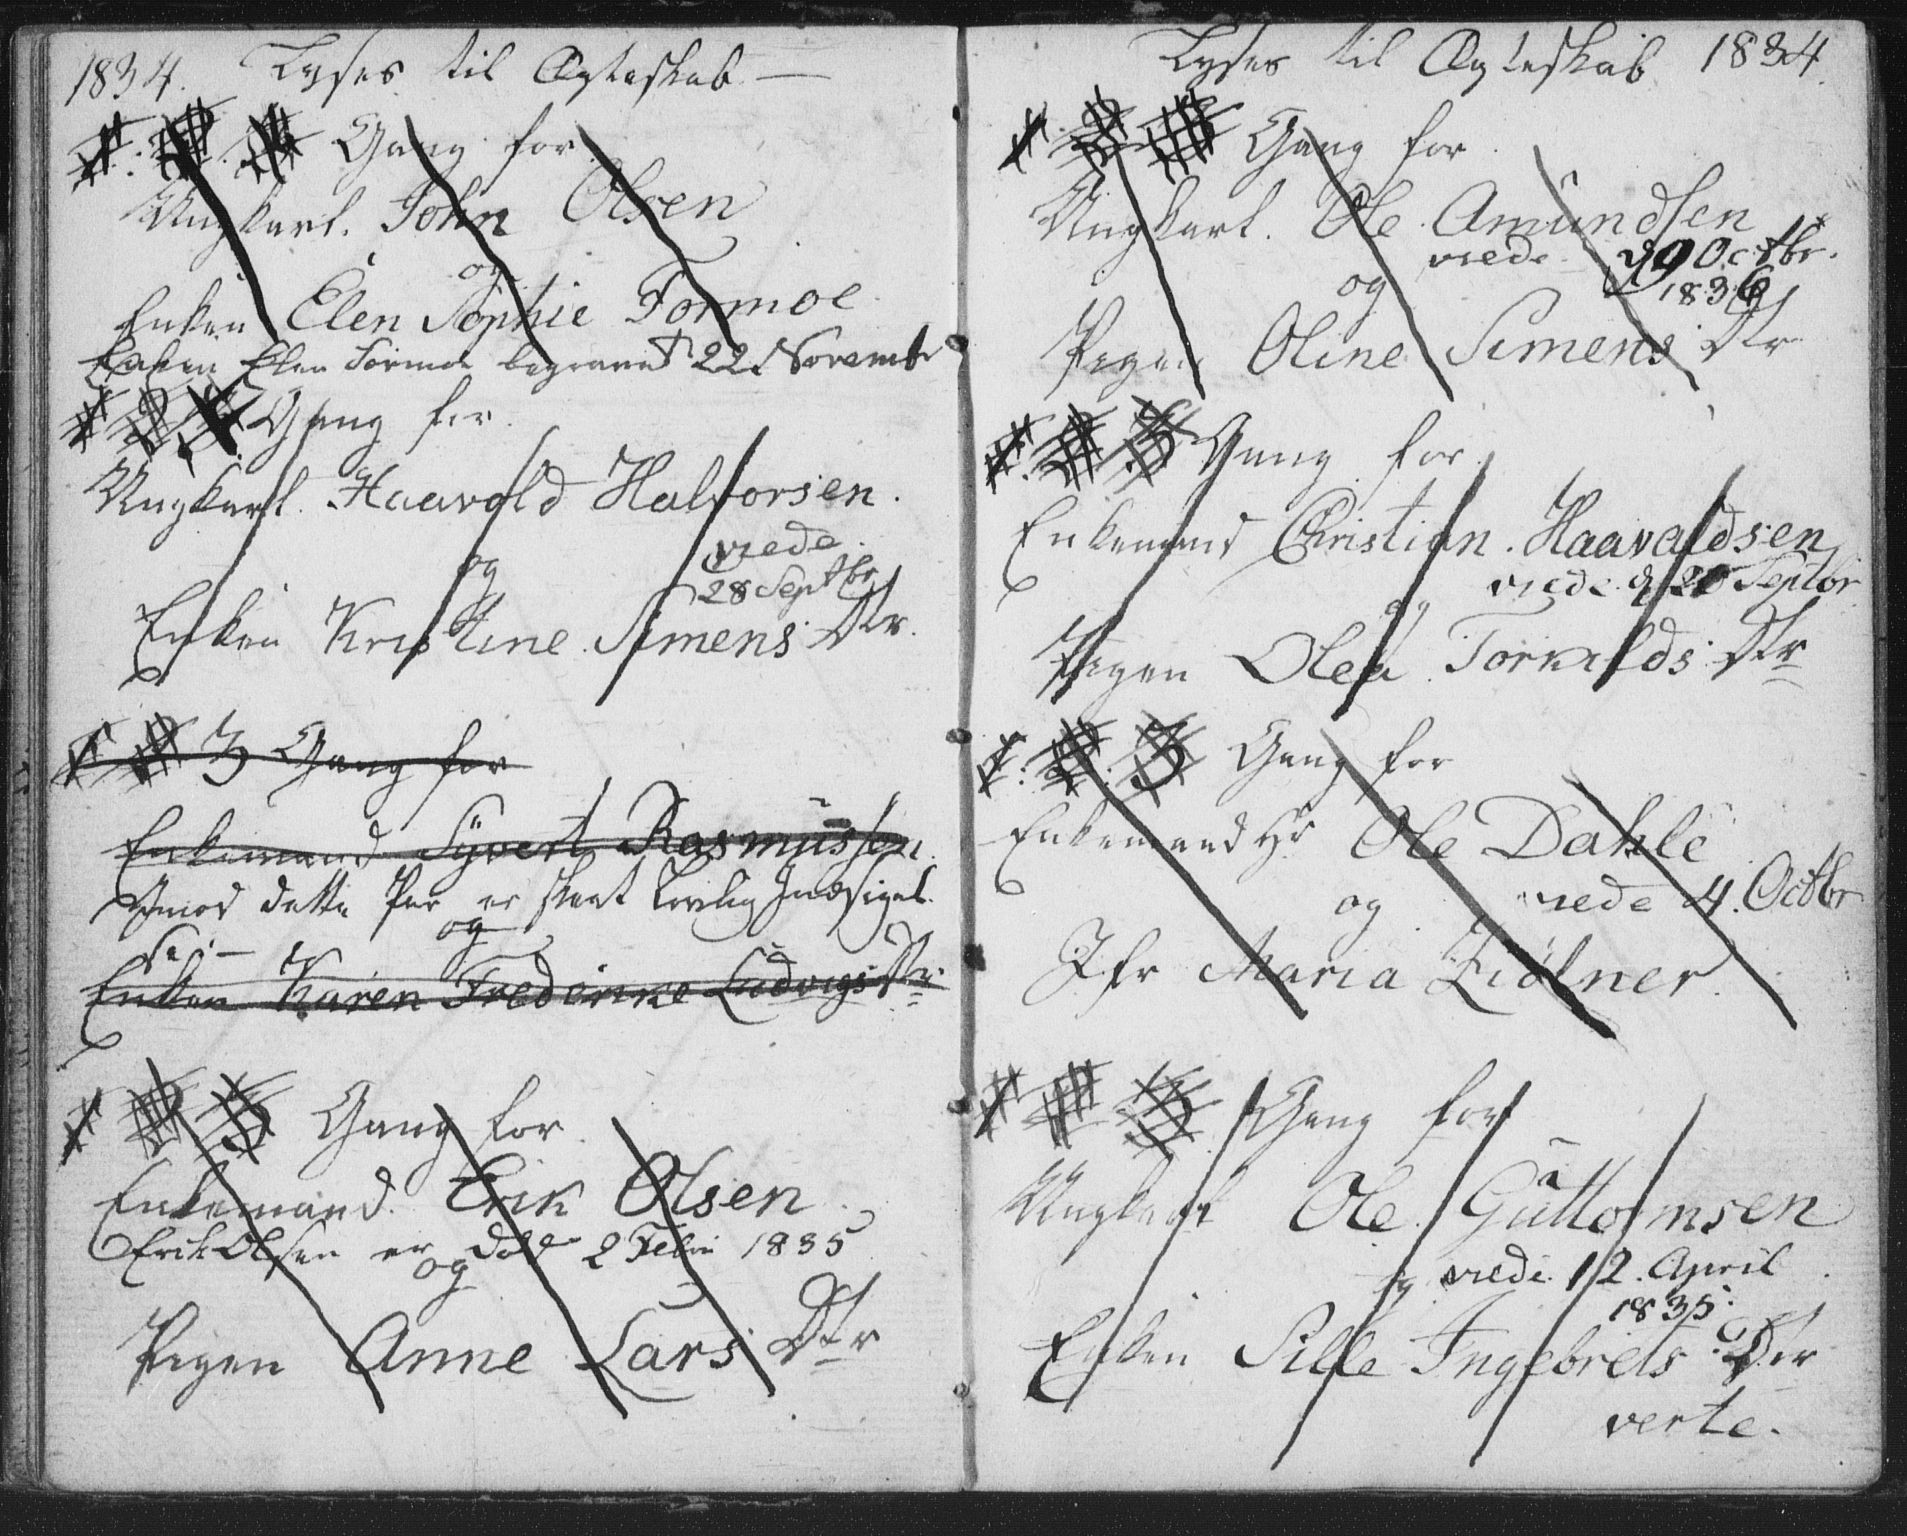 1834. Lyses til Ægteskab —
1. 2. 3. Gang for
Ungkarl. John Olsen
og
Enken Elen Sophie Formoe
Enken Elen Formoe begravet 22 Novemb
1 2 3. Gang for.
Ungkarl. Haavold Halvorsen.
viede.
og
28 Septbr
Enken Kristine Simens Dtr.
1 2 3 Gang for
Enkemand Syvert Rasmussen.
Imod dette Par er skeet Lovlig Indsigel-
se. —
og
Enken Karen Frederikke Ludvigs Dtr.
1 2 3 Gang for.
Enkemand. Erik Olsen
Erik Olsen er død 2 Febr 1835
og
Pigen Anne Lars Dtr
Lyses til Ægteskab 1834.
1. 2 3 Gang for.
Ungkarl. Ole Amundsen
viede Octbr.
og
1836
Pigen Oline Simens Dtr
1. 2 3 Gang for.
Enkemand Christian. Haavaldsen
viede d 20 Septbr
og
Pigen Olea Torkilds Dtr
1. 2. 3 Gang for
Enkemand Hr Ole Dahle
viede 4. Octbr
og
Jfr Maria Ziølner.
1 2 3 Gang for
Ungkarl Ole Guttormsen
og viede 12. April
1835.
Enken Sille Ingebrets Dtr
verte.